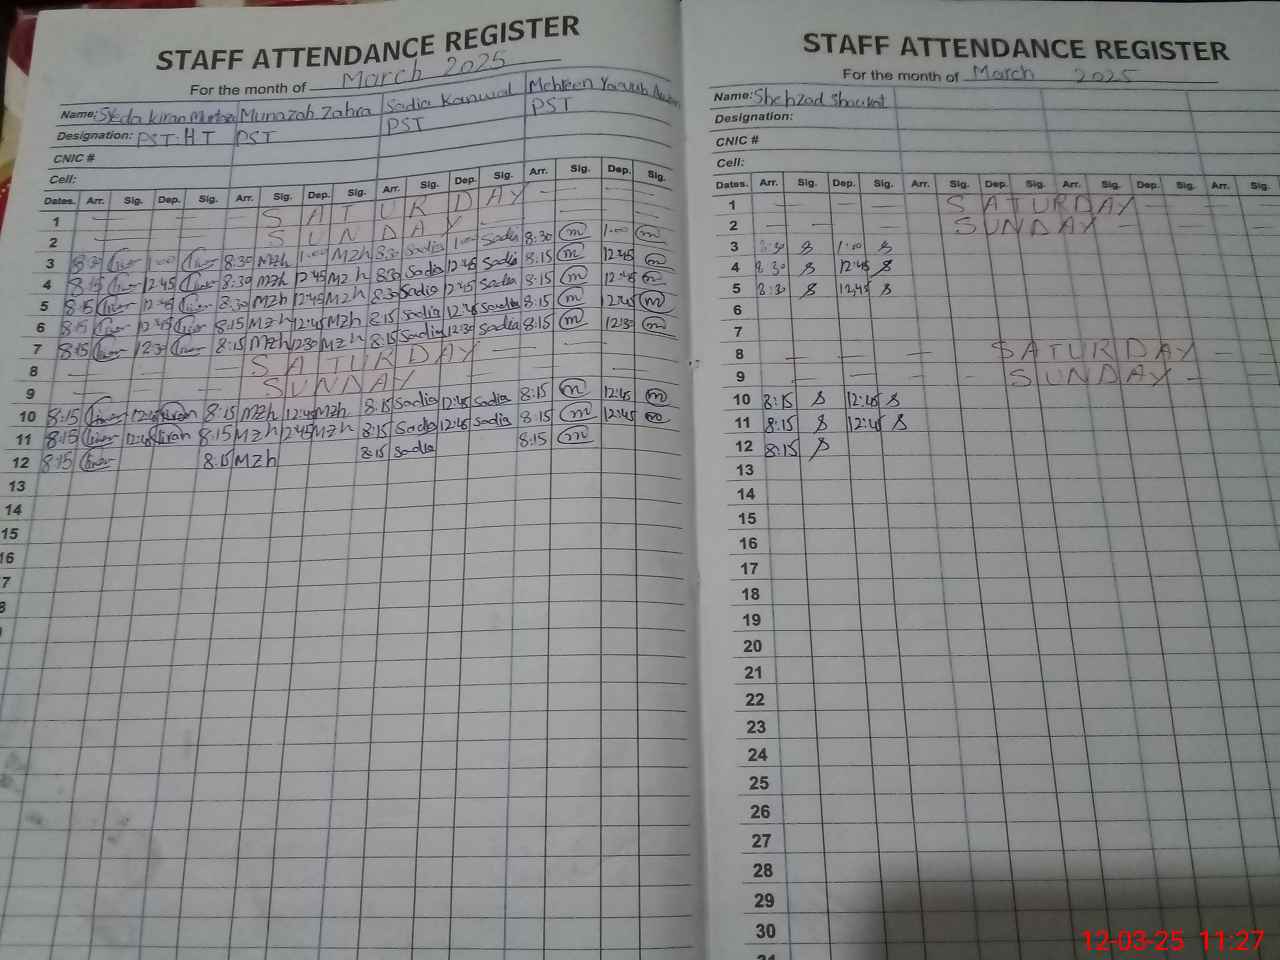 STAFF ATTENDANCE REGISTER
For the month of March 2025
Name: Syeda Kiran Murtaza Munazah Zahra Sadia Kanwal Mehreen Yaqub
Designation: PST-HT PST PST PST
CNIC #
Cell:
Dates. Arr. Sig. Dep. Sig. Arr. Sig. Dep. Sig. Arr. Sig. Dep. Sig. Arr. Sig. Dep. Sig.
1 SATURDAY
2 SUNDAY
3 8:30 1:00 8:30 Mzh 1:00 Mzh 8:30 Sadia 1:00 Sadia 8:30 m 1:00 m
4 8:15 12:45 8:30 Mzh 12:45 Mzh 8:30 Sadia 12:45 Sadia 8:15 m 12:45 m
5 8:15 12:45 8:30 Mzh 12:45 Mzh 8:30 Sadia 12:45 Sadia 8:15 m 12:45 m
6 8:15 12:45 8:15 Mzh 12:45 Mzh 8:15 Sadia 12:45 Sadia 8:15 m 12:45 m
7 8:15 12:30 8:15 Mzh 12:30 Mzh 8:15 Sadia 12:30 Sadia 8:15 m 12:30 m
8 SATURDAY
9 SUNDAY
10 8:15 12:45 Kiran 8:15 Mzh 12:45 Mzh 8:15 Sadia 12:45 Sadia 8:15 m 12:45 m
11 8:15 12:45 Kiran 8:15 Mzh 12:45 Mzh 8:15 Sadia 12:45 Sadia 8:15 m 12:45 m
12 8:15 8:15 Mzh 8:15 Sadia 8:15 m
13
14
15
16
7
8
STAFF ATTENDANCE REGISTER
For the month of March 2025
Name: Shehzad Shaukat
Designation:
CNIC #
Cell:
Dates. Arr. Sig. Dep. Sig. Arr. Sig. Dep. Sig. Arr. Sig. Dep. Sig. Arr. Sig.
1 SATURDAY
2 SUNDAY
3 8:30 S 1:00 S
4 8:30 S 12:45 S
5 8:30 S 12:45 S
6
7
8 SATURDAY
9 SUNDAY
10 8:15 S 12:45 S
11 8:15 S 12:45 S
12 8:15 S
13
14
15
16
17
18
19
20
21
22
23
24
25
26
27
28
29
30
31
12-03-25 11:27